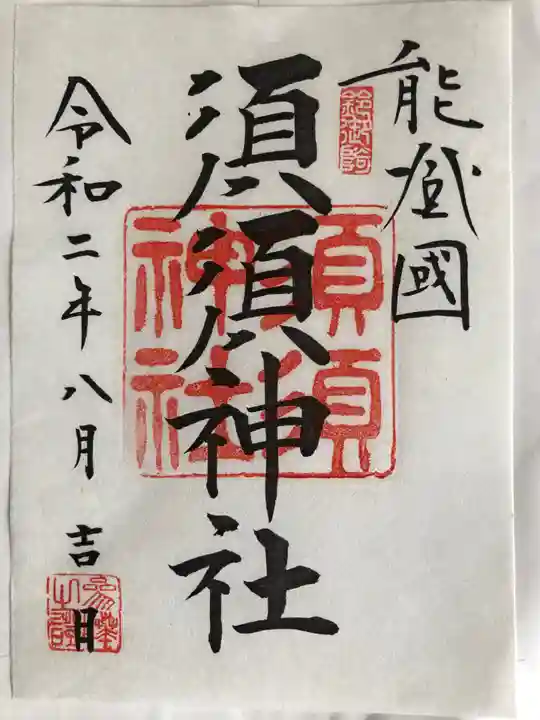 能登國
須須神社
須須
神社
令和二年八月吉日